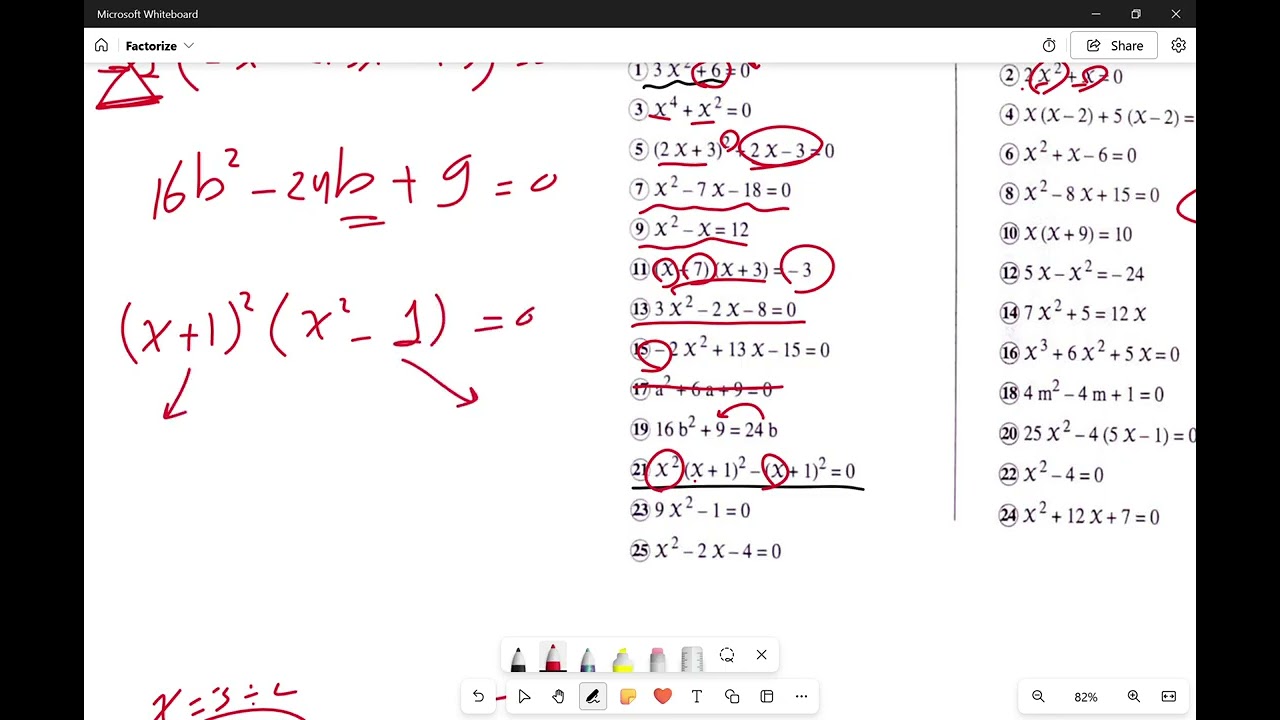 Microsoft Whiteboard
Factorize
Share
16b² - 24b + 9 = 0
(x+1)² (x² - 1) = 0
x = 3 ÷ 4
① 3 X² + 6 = 0
③ X⁴ + X² = 0
⑤ (2 X + 3)² + 2 X – 3 = 0
⑦ X² – 7 X – 18 = 0
⑨ X² – X = 12
⑪ (X – 7) (X + 3) = – 3
⑬ 3 X² – 2 X – 8 = 0
⑮ – 2 X² + 13 X – 15 = 0
⑰ a² + 6 a + 9 = 0
⑲ 16 b² + 9 = 24 b
㉑ X² (X + 1)² – (X + 1)² = 0
㉓ 9 X² – 1 = 0
㉕ X² – 2 X – 4 = 0
② 2 X² + X = 0
④ X (X – 2) + 5 (X – 2) =
⑥ X² + X – 6 = 0
⑧ X² – 8 X + 15 = 0
⑩ X (X + 9) = 10
⑫ 5 X – X² = – 24
⑭ 7 X² + 5 = 12 X
⑯ X³ + 6 X² + 5 X = 0
⑱ 4 m² – 4 m + 1 = 0
⑳ 25 X² – 4 (5 X – 1) = 0
㉒ X² – 4 = 0
㉔ X² + 12 X + 7 = 0
82%